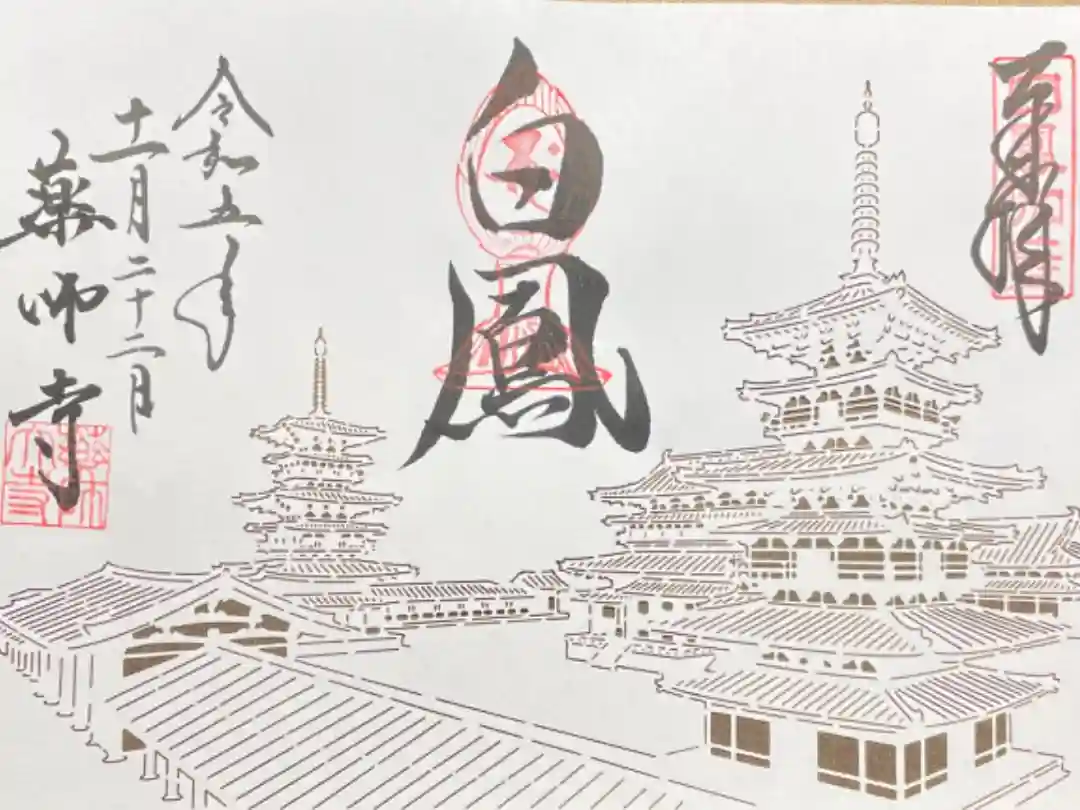 奉拝
白鳳
令和五年
十一月二十二日
薬師寺
薬師寺